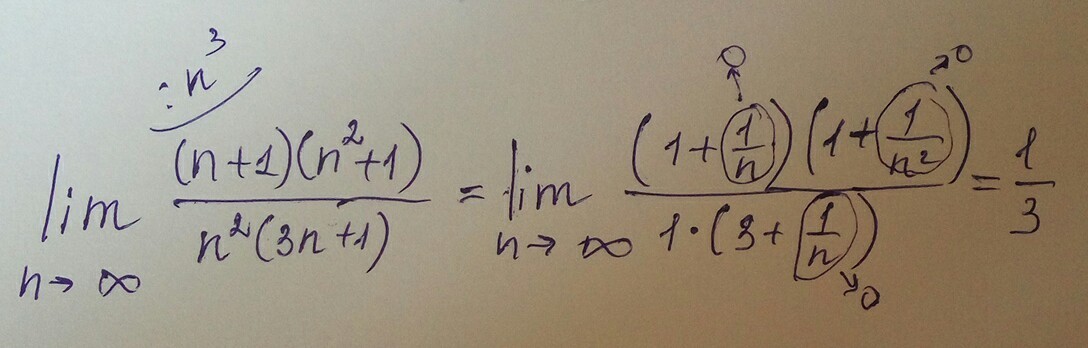 : n³
lim n→∞ (n+1)(n²+1) / n²(3n+1) = lim n→∞ (1+1/n)(1+1/n²) / 1·(3+1/n) = 1/3
→0 →0 →0